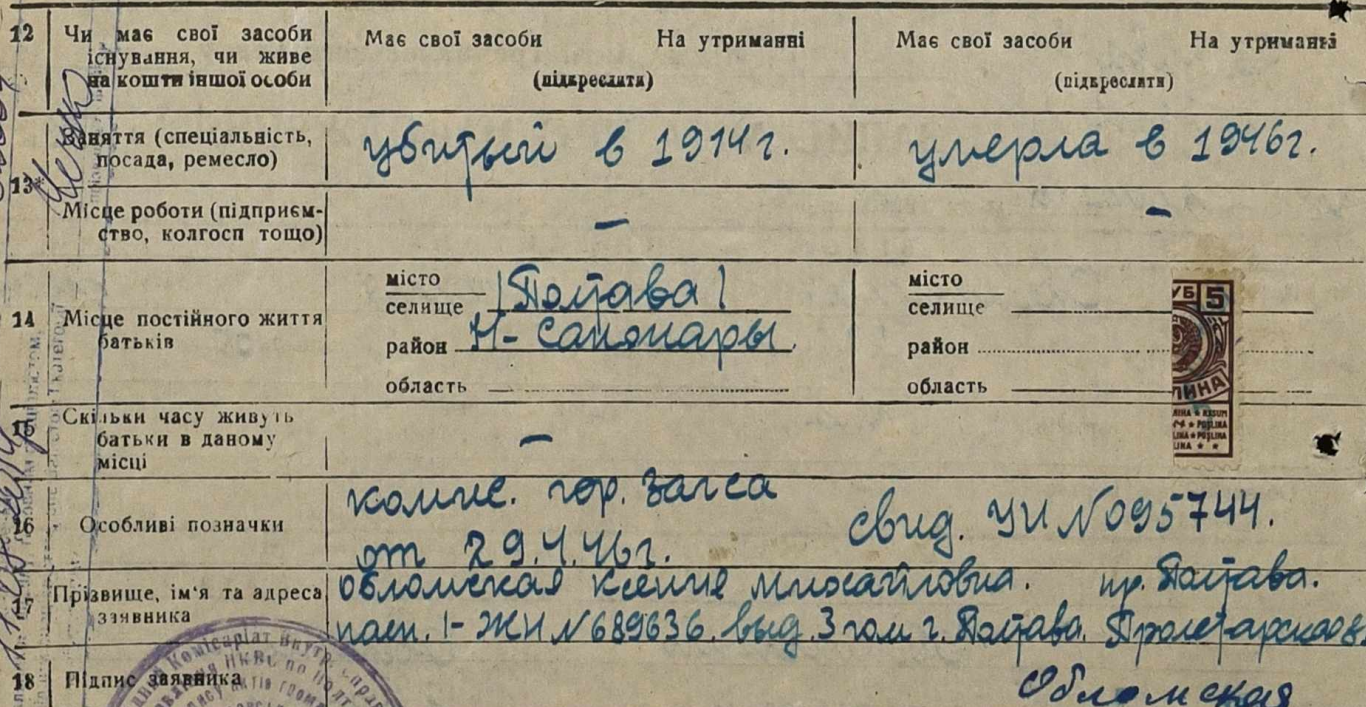 12 Чи має свої засоби існування, чи живе на кошти іншої особи
Має свої засоби На утриманні
(підкреслити)
Має свої засоби На утриманні
(підкреслити)
13 Заняття (спеціальність, посада, ремесло)
убитый в 1914г.
умерла в 1946г.
Місце роботи (підприємство, колгосп тощо)
—
—
14 Місце постійного життя батьків
місто
селище Полтава
район Н-Санжары
область
місто
селище
район
область
15 Скільки часу живуть батьки в даному місці
—
16 Особливі позначки
гор. загса
от 29.4.46г.
свид. УИ №095744.
17 Прізвище, ім'я та адреса заявника
Обломская Ксения Михайловна. пр. Полтава.
пасп. 1-ЖН №689636. выд. 3 гом г. Полтава. Пролетарская 8.
18 Підпис заявника
Обломская
5